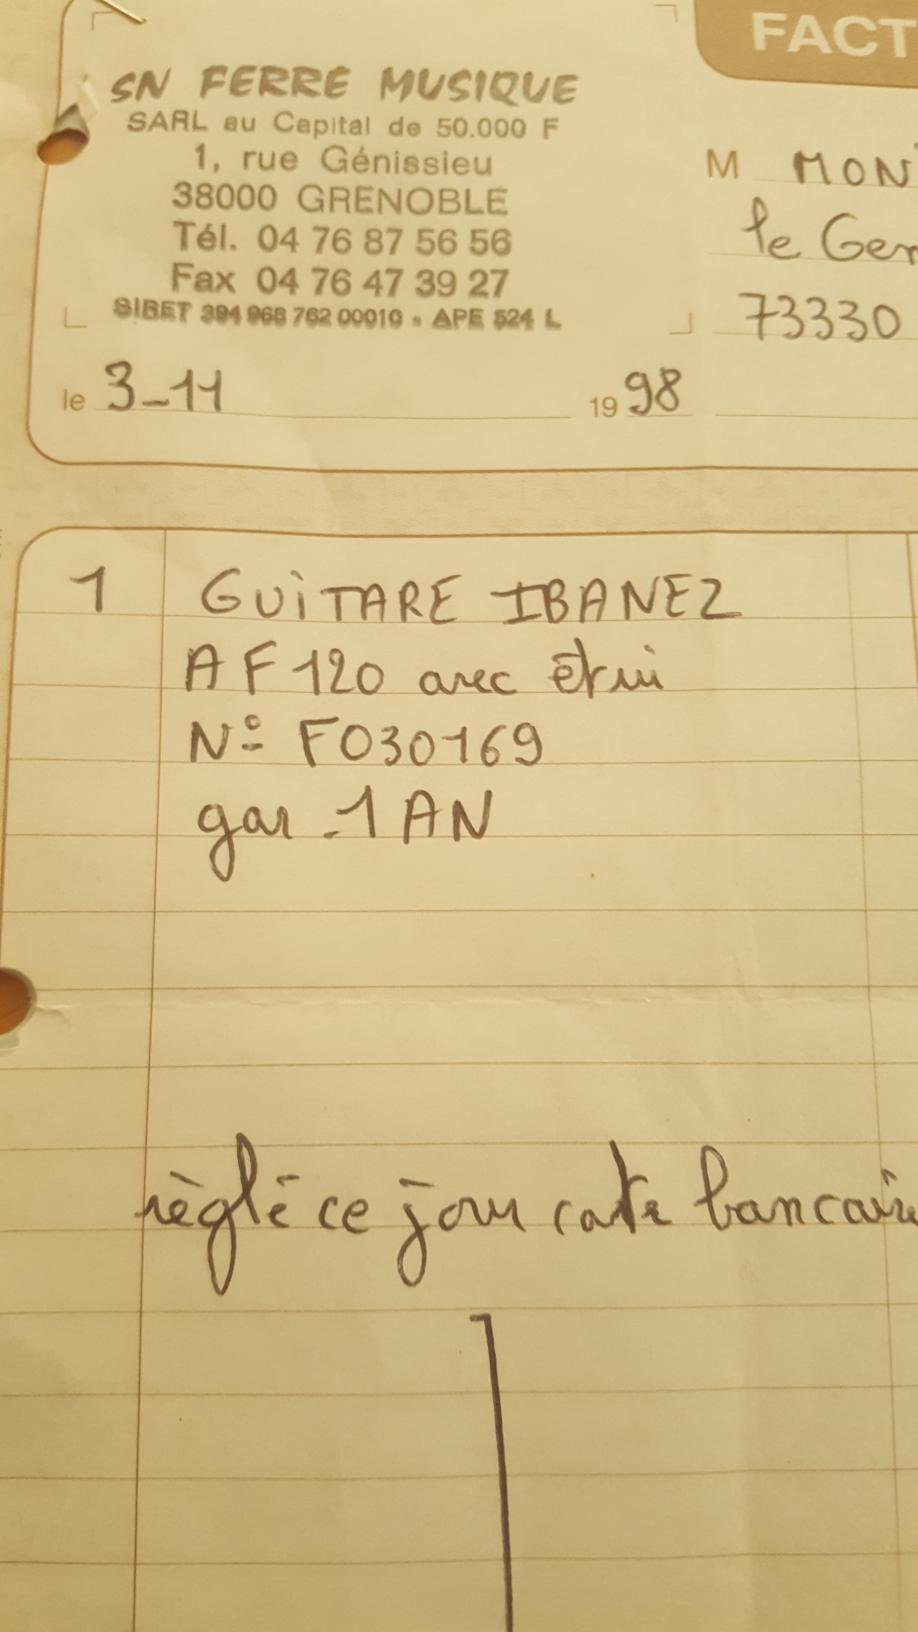 FACT
SN FERRE MUSIQUE
SARL au Capital de 50.000 F
1, rue Génissieu
38000 GRENOBLE
Tél. 04 76 87 56 56
Fax 04 76 47 39 27
SIRET 394 968 762 00010 - APE 524 L
M MON
le Ger
73330
le 3-11 1998
1 GUITARE IBANEZ
AF120 avec étui
No F030169
gar. 1 AN
règlé ce jour carte bancaire